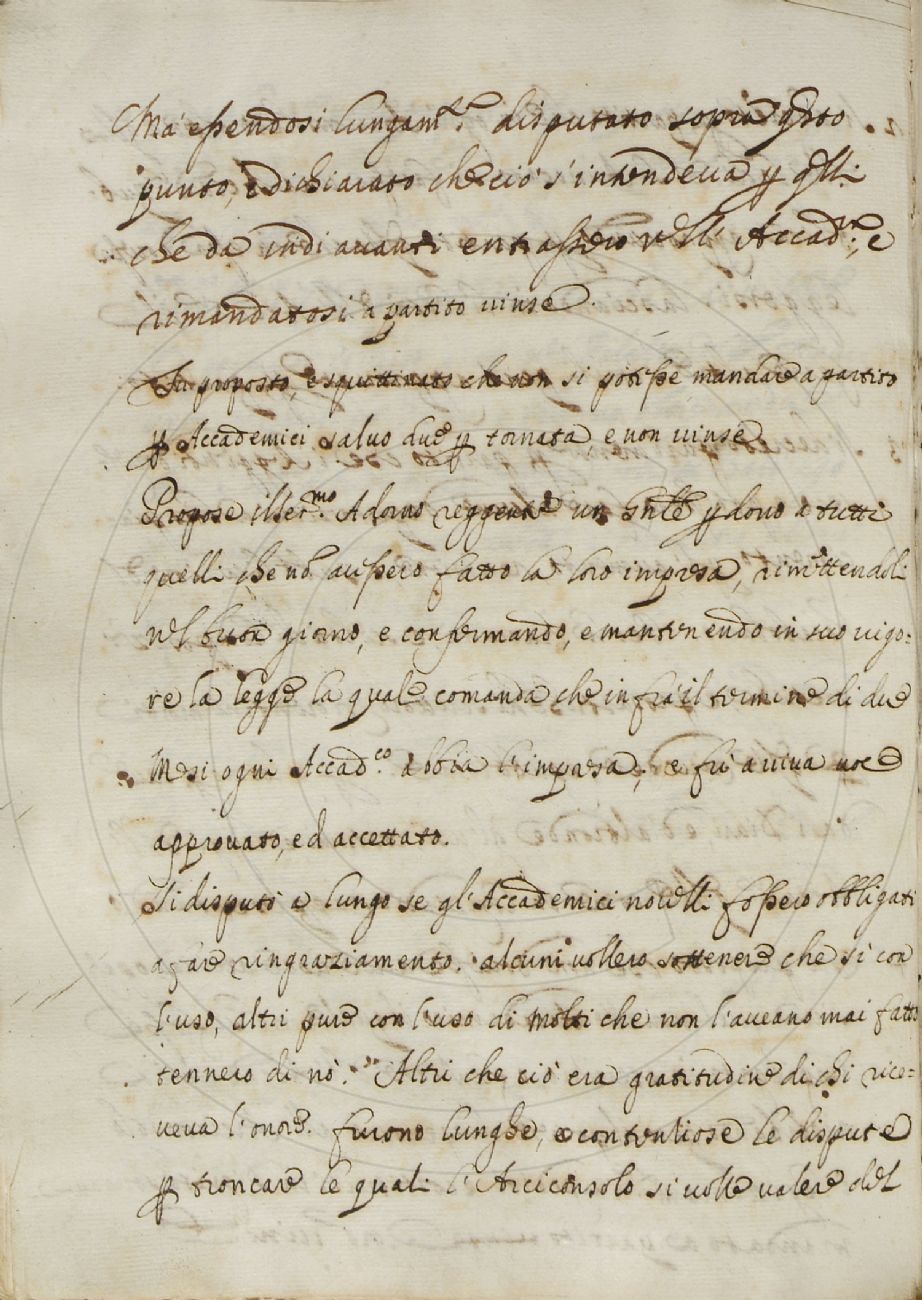 Ma essendosi lungam.te disputato sopra q̃sto
punto, e dichiarato che ciò s'intendeva ꝑ q̃lli
che da indi avanti entrassero nell' Accad.a, e
rimandatosi a partito vinse.
Fu proposto, e squittinato che non si potesse mandare a partito
ꝑ Accademici salvo due ꝑ tornata, e non vinse
Propose il Ser.mo Adorno reggente un ꝑdono a tutti
quelli che nõ avessero fatto la loro impresa, rimettendoli
nel buon giorno, e confermando, e mantenendo in suo vigo=
re la legge la quale comanda che infra il termine di due
Mesi ogni Accad.co abbia l'impresa; e fù a viva voce
approvato, ed accettato.
Si disputò a lungo se gl'Accademici novelli fossero obbligati
a fare ringraziamento. alcuni vollero sostenere che sì con
l'uso, altri pure con l'uso di molti che non l'aveano mai fatto
tennero di nò. Altri che ciò era gratitudine di chi rice=
veva l'onore. furono lunghe, e contenziose le dispute
ꝑ troncare le quali l'Arciconsolo si volle valere del